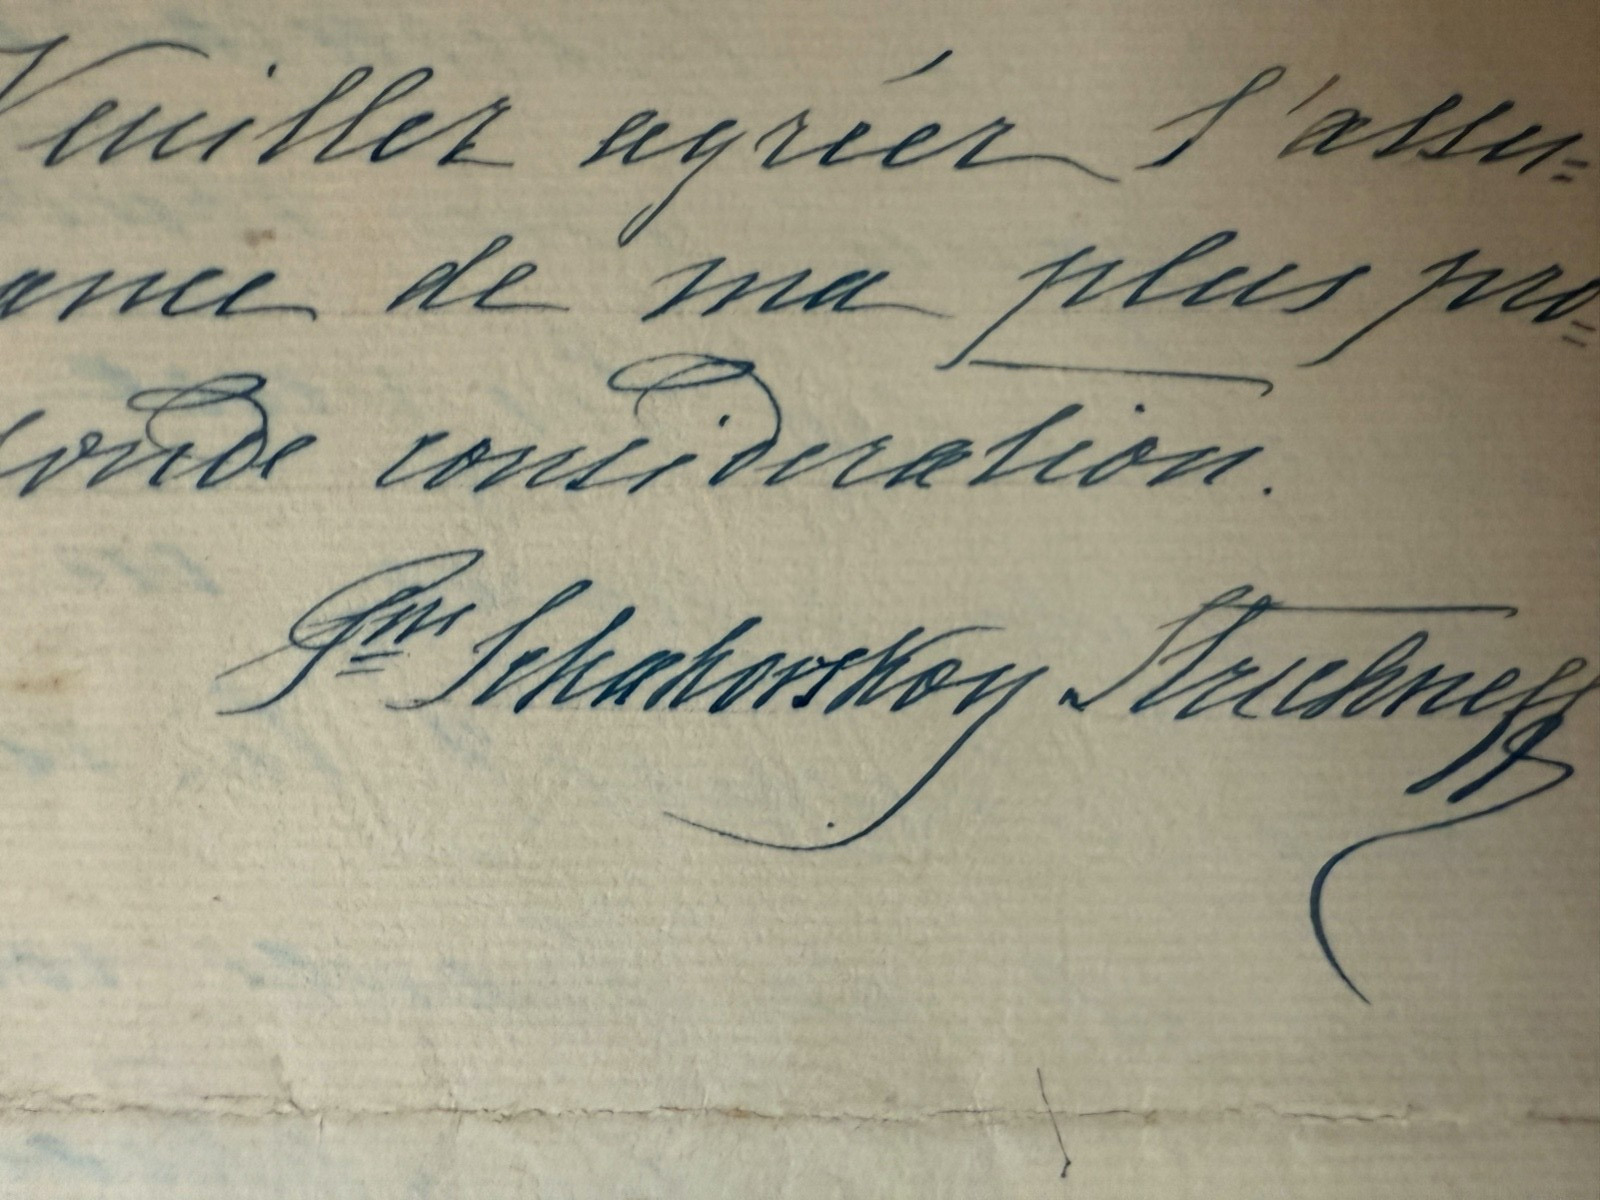 Veuillez agréer l'assu=
ance de ma plus pro=
fonde consideration.
Pm Schahovskoy Strechneff